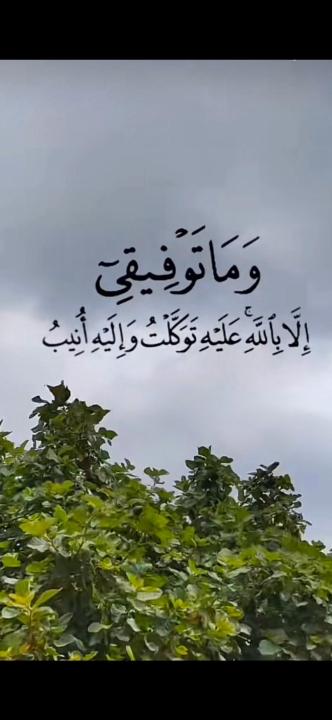 وَمَا تَوْفِيقِىٓ
إِلَّا بِٱللَّهِ ۚ عَلَيْهِ تَوَكَّلْتُ وَإِلَيْهِ أُنِيبُ